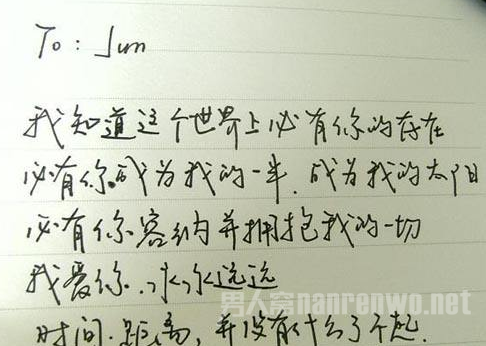 To: Jun
我知道这个世界上必有你的存在
必有你成为我的一半.成为我的太阳
必有你容纳并拥抱我的一切
我爱你.永永远远
时间.距离,并没有什么了不起.
男人窝nanrenwo.net